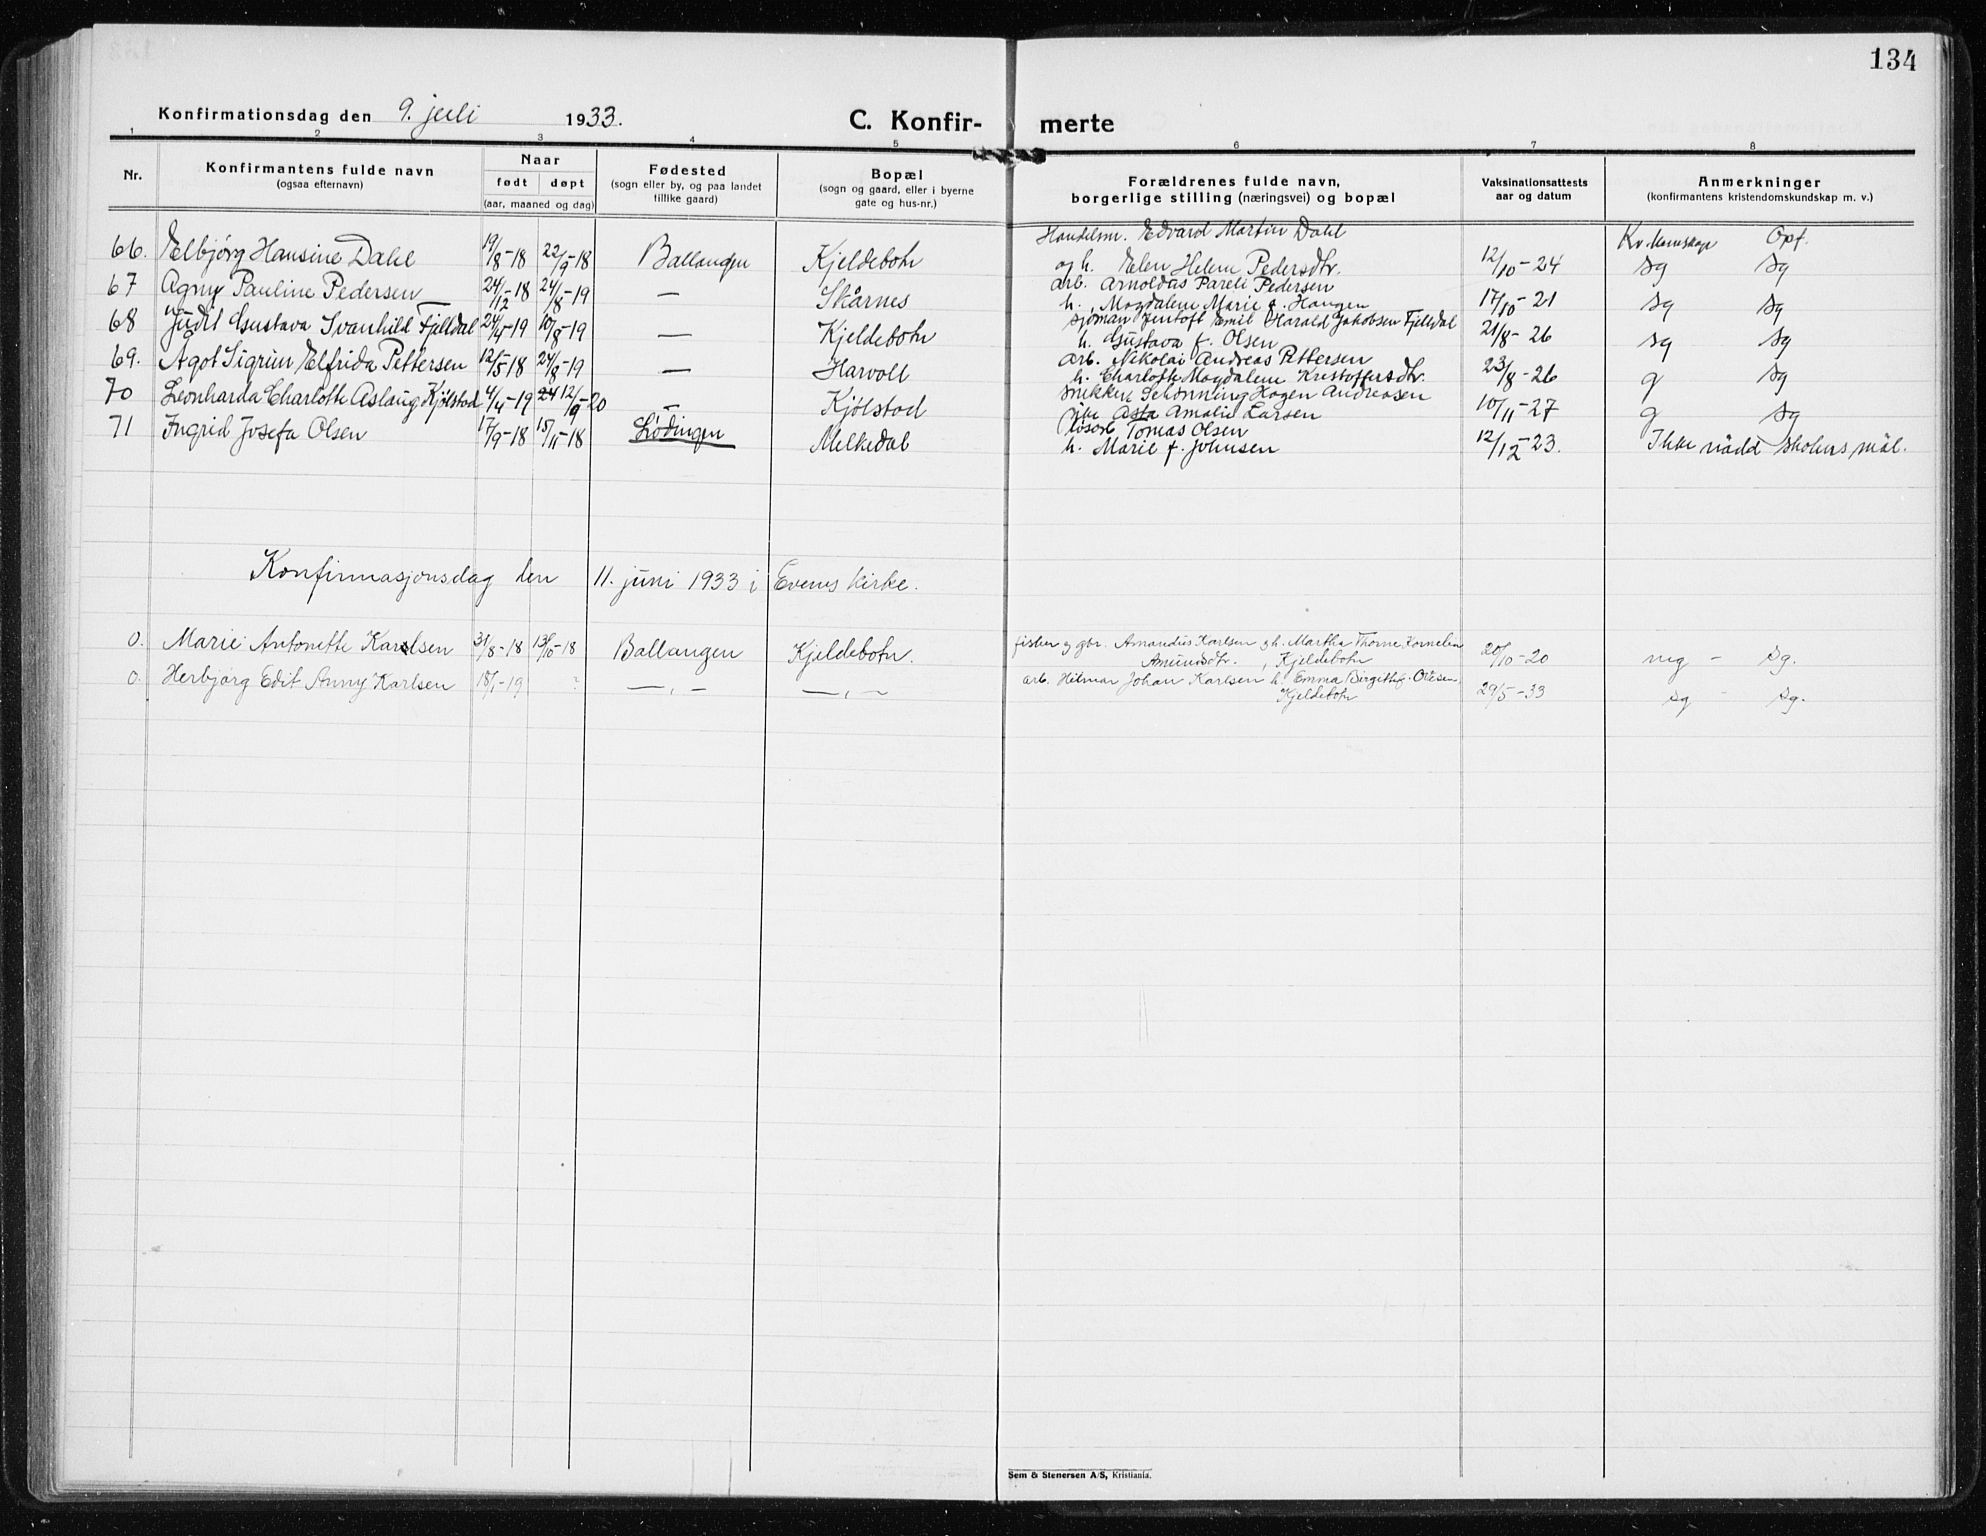 134
Konfirmationsdag den 9. juli 1933. C. Konfir- merte
1 2 3 4 5 6 7 8
Nr. Konfirmantens fulde navn (ogsaa efternavn) Naar født døpt (aar, maaned og dag) Fødested (sogn eller by, og paa landet tillike gaard) Bopæl (sogn og gaard, eller i byerne gate og hus-nr.) Forældrenes fulde navn, borgerlige stilling (næringsvei) og bopæl Vaksinationsattests aar og datum Anmerkninger (konfirmantens kristendomskundskap m. v.)
Handelsm. Edvard Martin Dahl Kr. kunnskap Opf.
66. Elbjørg Hansine Dahl 19/8-18 22/9-18 Ballangen Kjeldebotn og h. Elen Helene Pedersdtr. 12/10-24 sg sg
arb. Arnoldus Pareli Pedersen
67 Agny Pauline Pedersen 24/12-18 24/8-19 — Skårnes h. Magdalene Marie f. Haugen 17/10-21 sg sg
sjöman Jentoft Emil Harald Jakobsen Fjelldal
68 Judit Gustava Svanhild Fjelldal 24/4-19 10/8-19 — Kjeldebotn h. Gustava f. Olsen 21/8-26 sg sg
arb. Nikolai Andreas Pettersen
69. Agot Sigrun Elfrida Pettersen 12/5-18 24/8-19 — Harvoll h. Charlotte Magdalene Kristoffersdtr. 23/8-26 g sg
snekker Schønning Hagen Andreasen
70 Leonharda Charlotte Aslaug Kjölstad 4/4-19 24 12/9-20 — Kjölstad Asta Amalie Larsen 10/11-27 g sg
Tomas Olsen
71 Ingrid Josefa Olsen 17/9-18 15/11-18 Lödingen Melkedal h. Marie f. Johnsen 12/12-23. Ikke nådd skolens mål.
Konfirmasjonsdag den 11. juni 1933 i Evenes kirke.
0. Marie Antonette Karlsen 31/8-18 13/10-18 Ballangen Kjeldebotn. fisker og gbr. Amandus Karlsen og h. Martha Thorine Kornelia Amundsdtr., Kjeldebotn 20/10-20 mg - sg.
0. Herbjørg Edit Anny Karlsen 18/1-19 ? —„— —„— arb. Hilmar Johan Karlsen h. Emma Birgithe f. Olsen, Kjeldebotn 29/5-33 sg - sg.
Sem & Stenersen A/S, Kristiania.